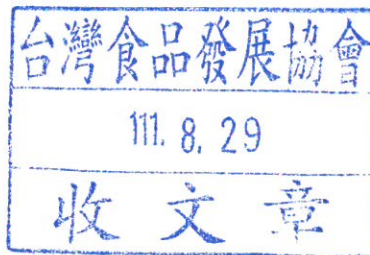 台灣食品發展協會
111. 8. 29
收文章